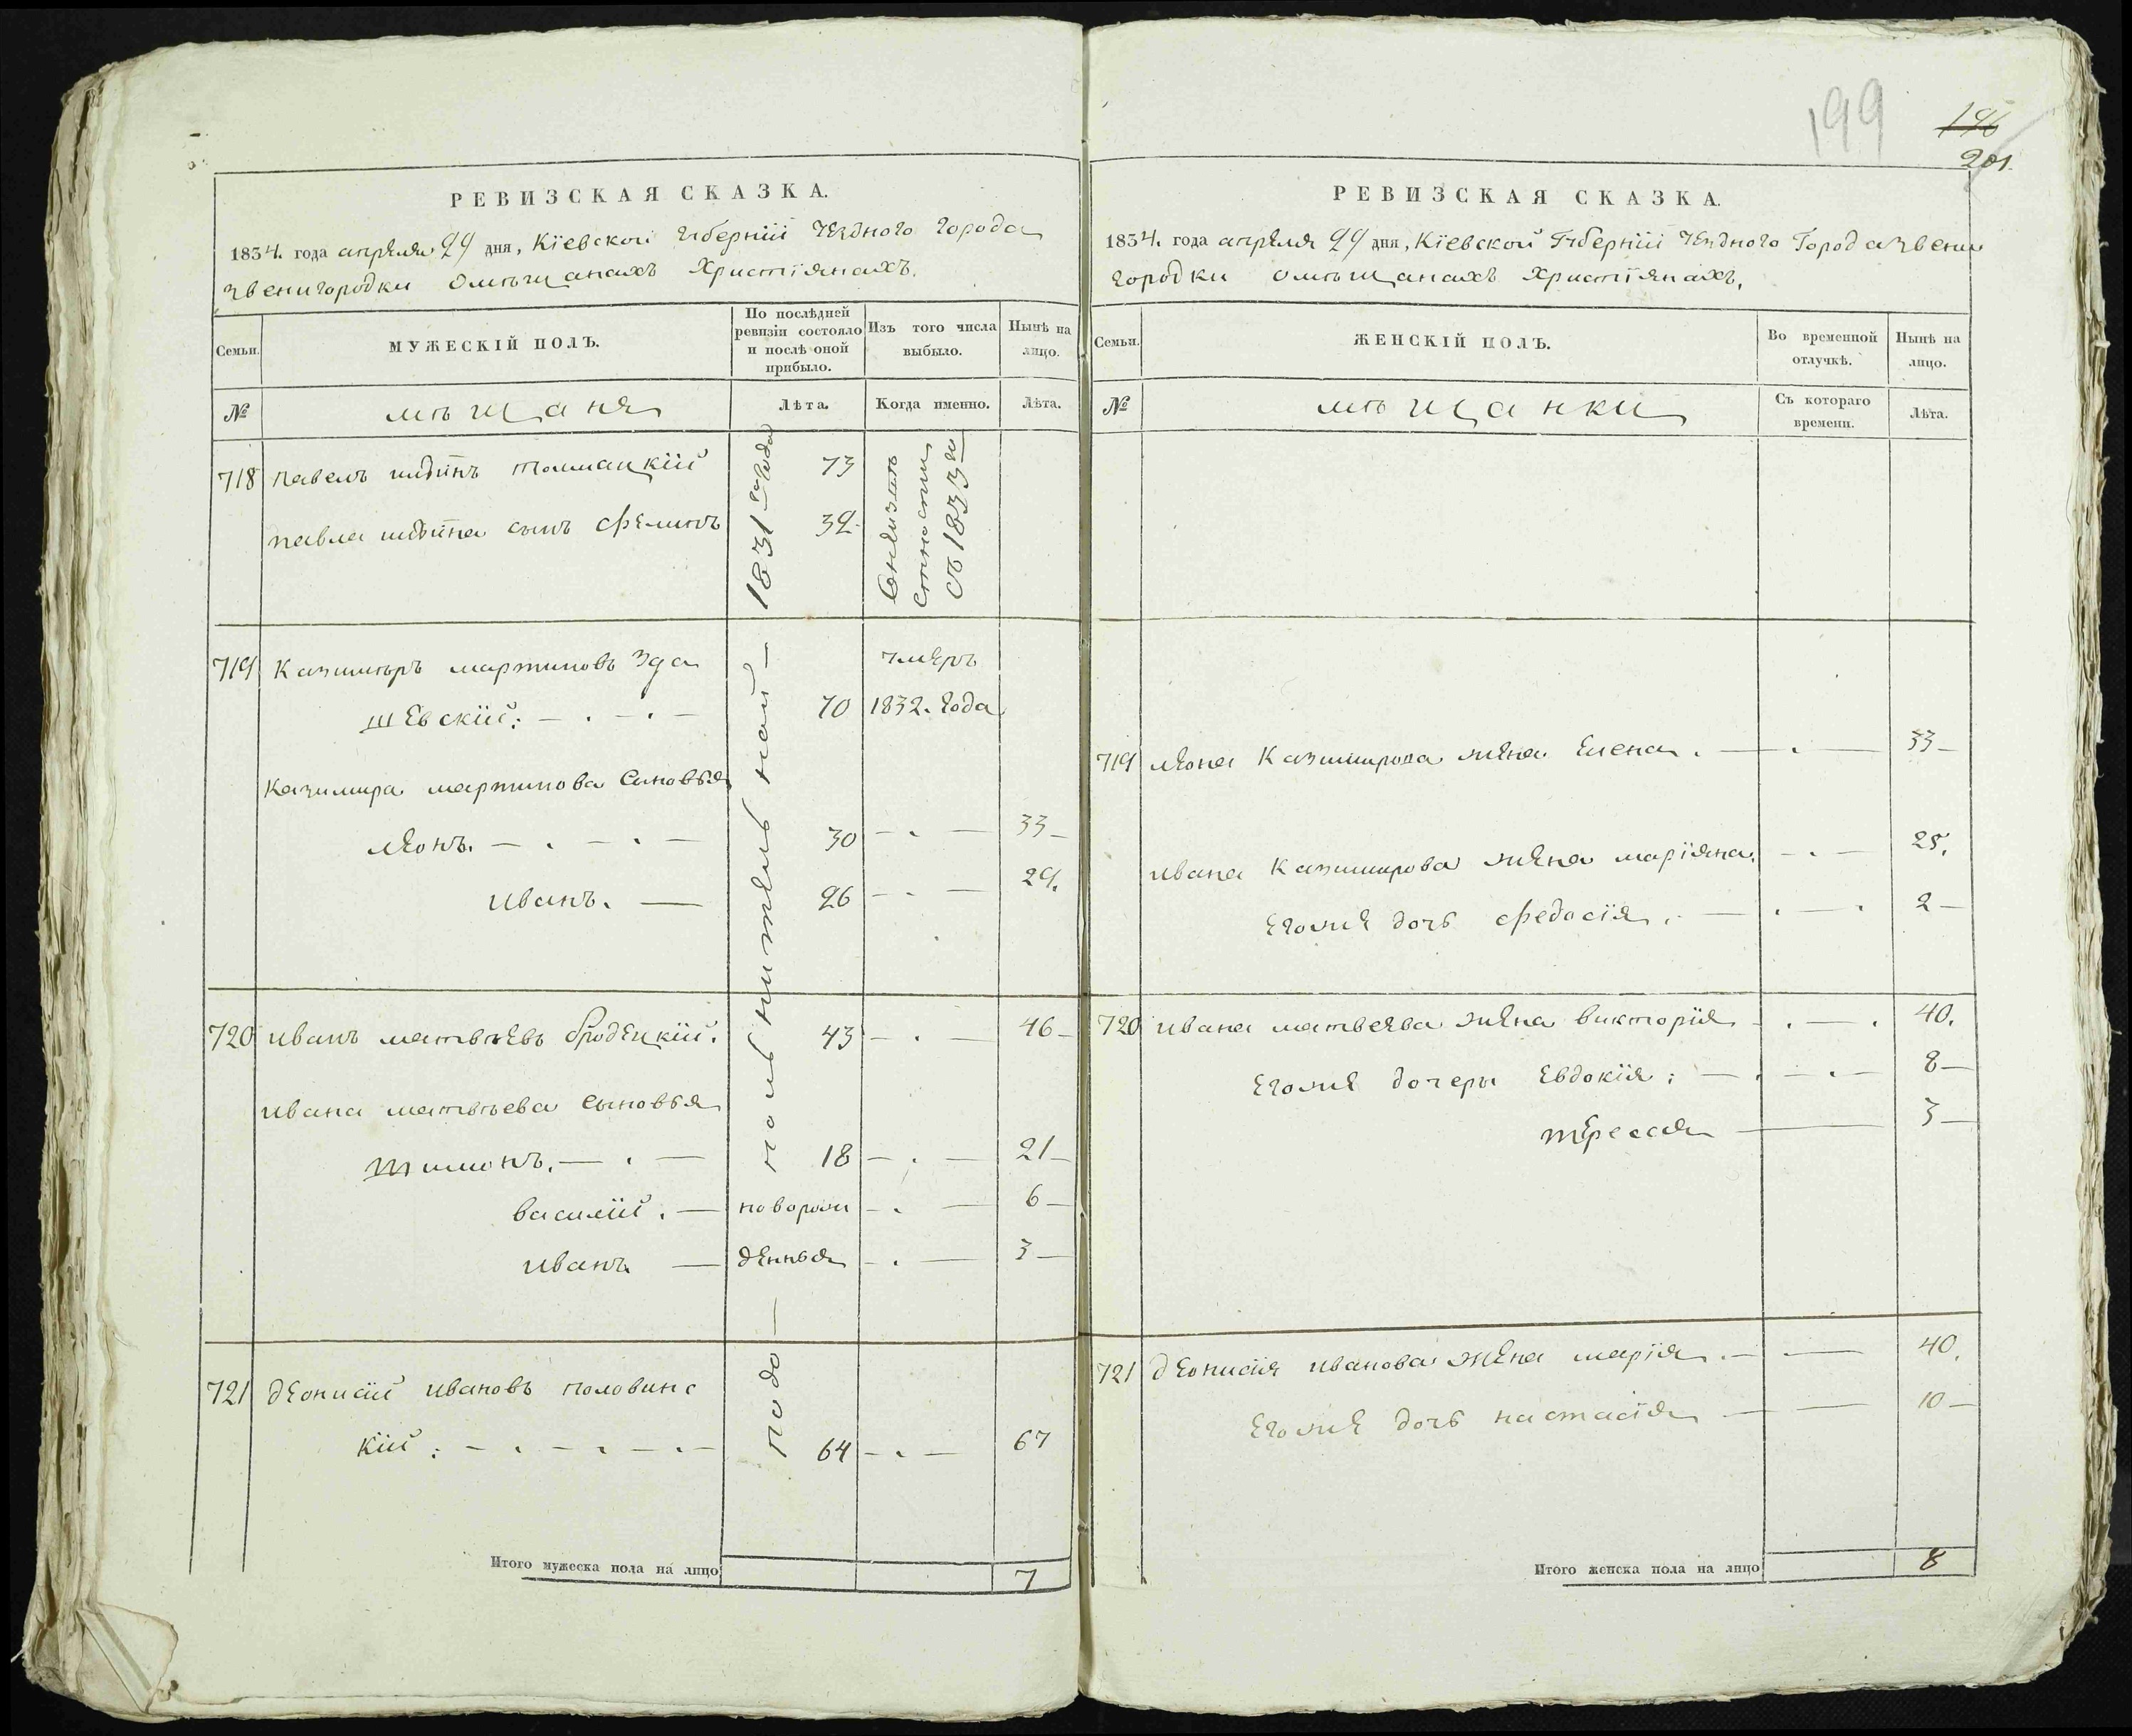 199
196
201.
РЕВИЗСКАЯ СКАЗКА.
1834. года апреля 29 дня, Кїевской губернїи уезднаго города
звенигородки омѣщанахъ Христїянахъ.
Семьи.
МУЖЕСКІЙ ПОЛЪ.
По послѣдней ревизіи состояло и послѣ оной прибыло.
Изъ того числа выбыло.
Нынѣ на лицо.
№
мѣщаня
Лѣта.
Когда именно.
Лѣта.
718 павелъ толмацкїй 73
павла сынъ 32
1831 года
съ 1833 го
719 Казимѣръ мартиновъ
шевскїй: 70
умеръ
1832. года
Казимира мартинова сыновья
леонъ. 30 33
иванъ. 26 29.
720 иванъ матвѣевъ бродецкїй. 43 46
ивана матвѣева сыновья
тимонъ. 18 21
василїй. новорож 6
иванъ денныя 3
721 деонисїй ивановъ половинс
кїй: 64 67
подо
Итого мужеска пола на лицо 7
РЕВИЗСКАЯ СКАЗКА.
1834. года апреля 29 дня, Кїевской Губернїи уезднаго Города звени
городки омѣщанахъ Христїянахъ.
Семьи.
ЖЕНСКІЙ ПОЛЪ.
Во временной отлучкѣ.
Нынѣ на лицо.
№
мѣщанки
Съ котораго времени.
Лѣта.
719 леона Казимирова жена елена. 33
ивана Казимирова жена марїяна. 25.
егоже дочь федосїя. 2
720 ивана матвеева жена викторїя 40.
егоже дочеры евдокїя: 8
тересся 3
721 деонисїя иванова жена марїя. 40.
егоже дочь настасїя 10
Итого женска пола на лицо 8